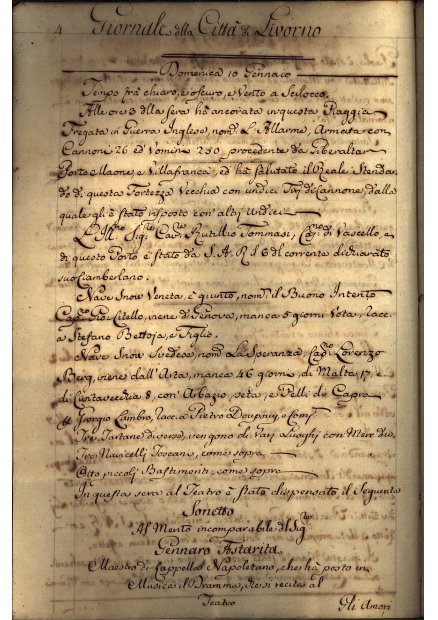 4 Giornale della Città di Livorno
Domenica 10 Gennaio
Tempo frà chiaro, e oscuro, e Vento a Scilocco.
Alle ore 3 della sera hà ancorato in questa Piaggia
Fregata in Guerra Inglese, nom. L'Allarme, Armata con
Cannoni 26 ed Vomini 250, procedente da Gibeltar
Porto Maone, e Villafranca, ed hà salutato il Reale Stendar
do di questa Fortezza Vecchia con undici Tiri di Cannone, dalla
quale gli è stato risposto con altri Undici.
L'Ill.mo Sig.re Cav.re Rutilio Tommasi, Cap.no di Vascello, e
di questo Porto è stato da S.A.R. il 6 del corrente dichiarato
suo Ciamberlano.
Nave Snow Veneta, è giunto, nom. il Buono Intento
Cap.no Gio: Citello, viene di Genova, manca 5 giorni Vota, racc.
a Stefano Bettoja, e Figlio.
Nave Snow Svedese, nom. La Speranza, Cap. Lorenzo
Berg, viene dall'Arta, manca 46 giorni, di Malta 17, e
di Civitavecchia 8, con Arbagio, seta, e Pelli di Capra
Giorgio Cambro, racc. a Pietro Doupouy, e Comp.
Tre Tartane diverse, vengono di Varj Luoghi con Merc. div.
Tre Navicelli Toscani, come sopra
Otto piccoli Bastimenti, come sopra
In questa sera al Teatro è stato dispensato il Seguente
Sonetto
Al Merito incomparabile del Sig.re
Gennaro Astarita
Maestro di Cappella Napoletano, che hà posto in
Musica il Dramma, che si recita al
Teatro
Gli Amori